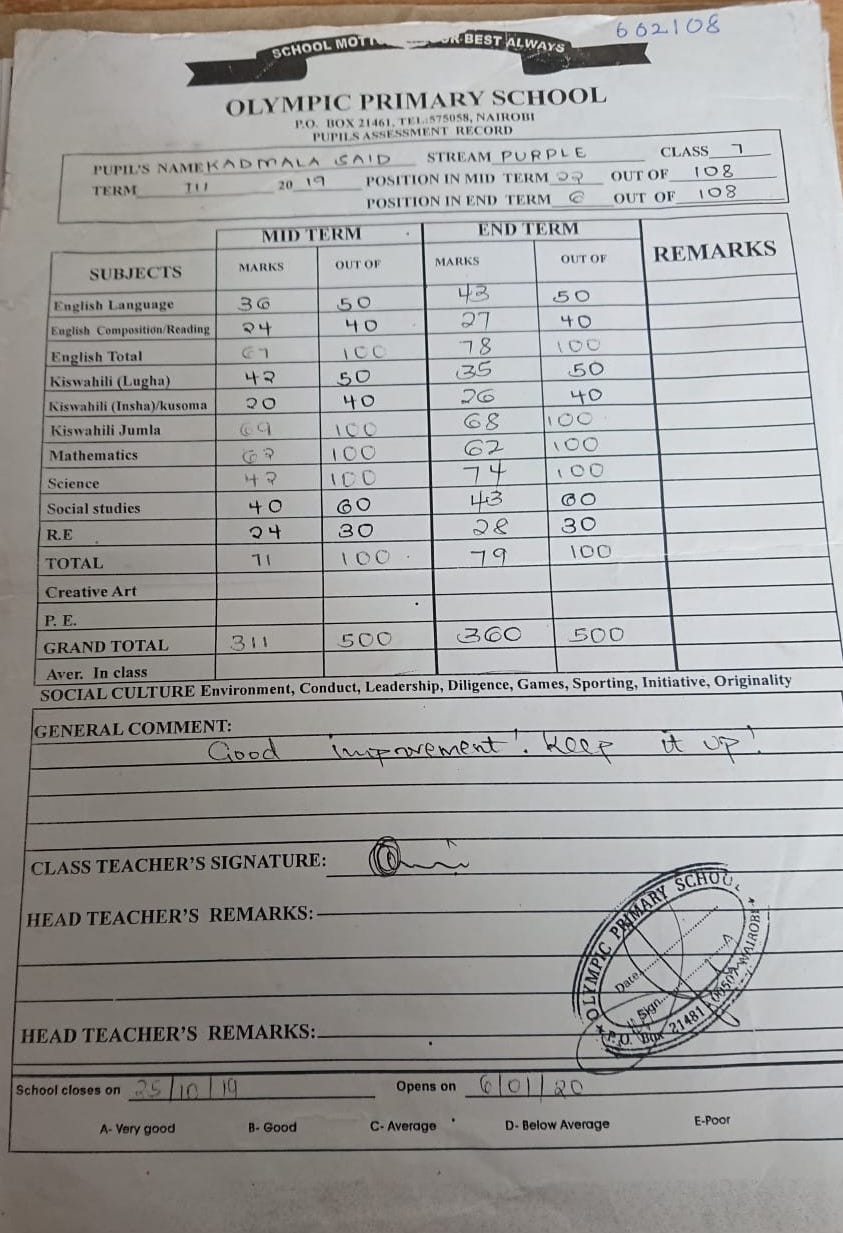 662108
SCHOOL MOTTO BEST ALWAYS
OLYMPIC PRIMARY SCHOOL
P.O. BOX 21461, TEL:575058, NAIROBI
PUPILS ASSESSMENT RECORD
PUPIL'S NAME KADMALA SAID STREAM PURPLE CLASS 7
TERM III 20 19 POSITION IN MID TERM 22 OUT OF 108
POSITION IN END TERM 6 OUT OF 108
MID TERM END TERM
SUBJECTS MARKS OUT OF MARKS OUT OF REMARKS
English Language 36 50 43 50
English Composition/Reading 24 40 27 40
English Total 67 100 78 100
Kiswahili (Lugha) 42 50 35 50
Kiswahili (Insha)/kusoma 20 40 26 40
Kiswahili Jumla 69 100 68 100
Mathematics 62 100 62 100
Science 42 100 74 100
Social studies 40 60 43 60
R.E 24 30 28 30
TOTAL 71 100 79 100
Creative Art
P. E.
GRAND TOTAL 311 500 360 500
Aver. In class
SOCIAL CULTURE Environment, Conduct, Leadership, Diligence, Games, Sporting, Initiative, Originality
GENERAL COMMENT:
Good improvement! Keep it up!
CLASS TEACHER'S SIGNATURE:
HEAD TEACHER'S REMARKS:
OLYMPIC PRIMARY SCHOOL
Date
Sign
P.O. Box 21481 - 00505 NAIROBI
HEAD TEACHER'S REMARKS:
School closes on 25/10/19 Opens on 6/01/20
A- Very good B- Good C- Average D- Below Average E-Poor